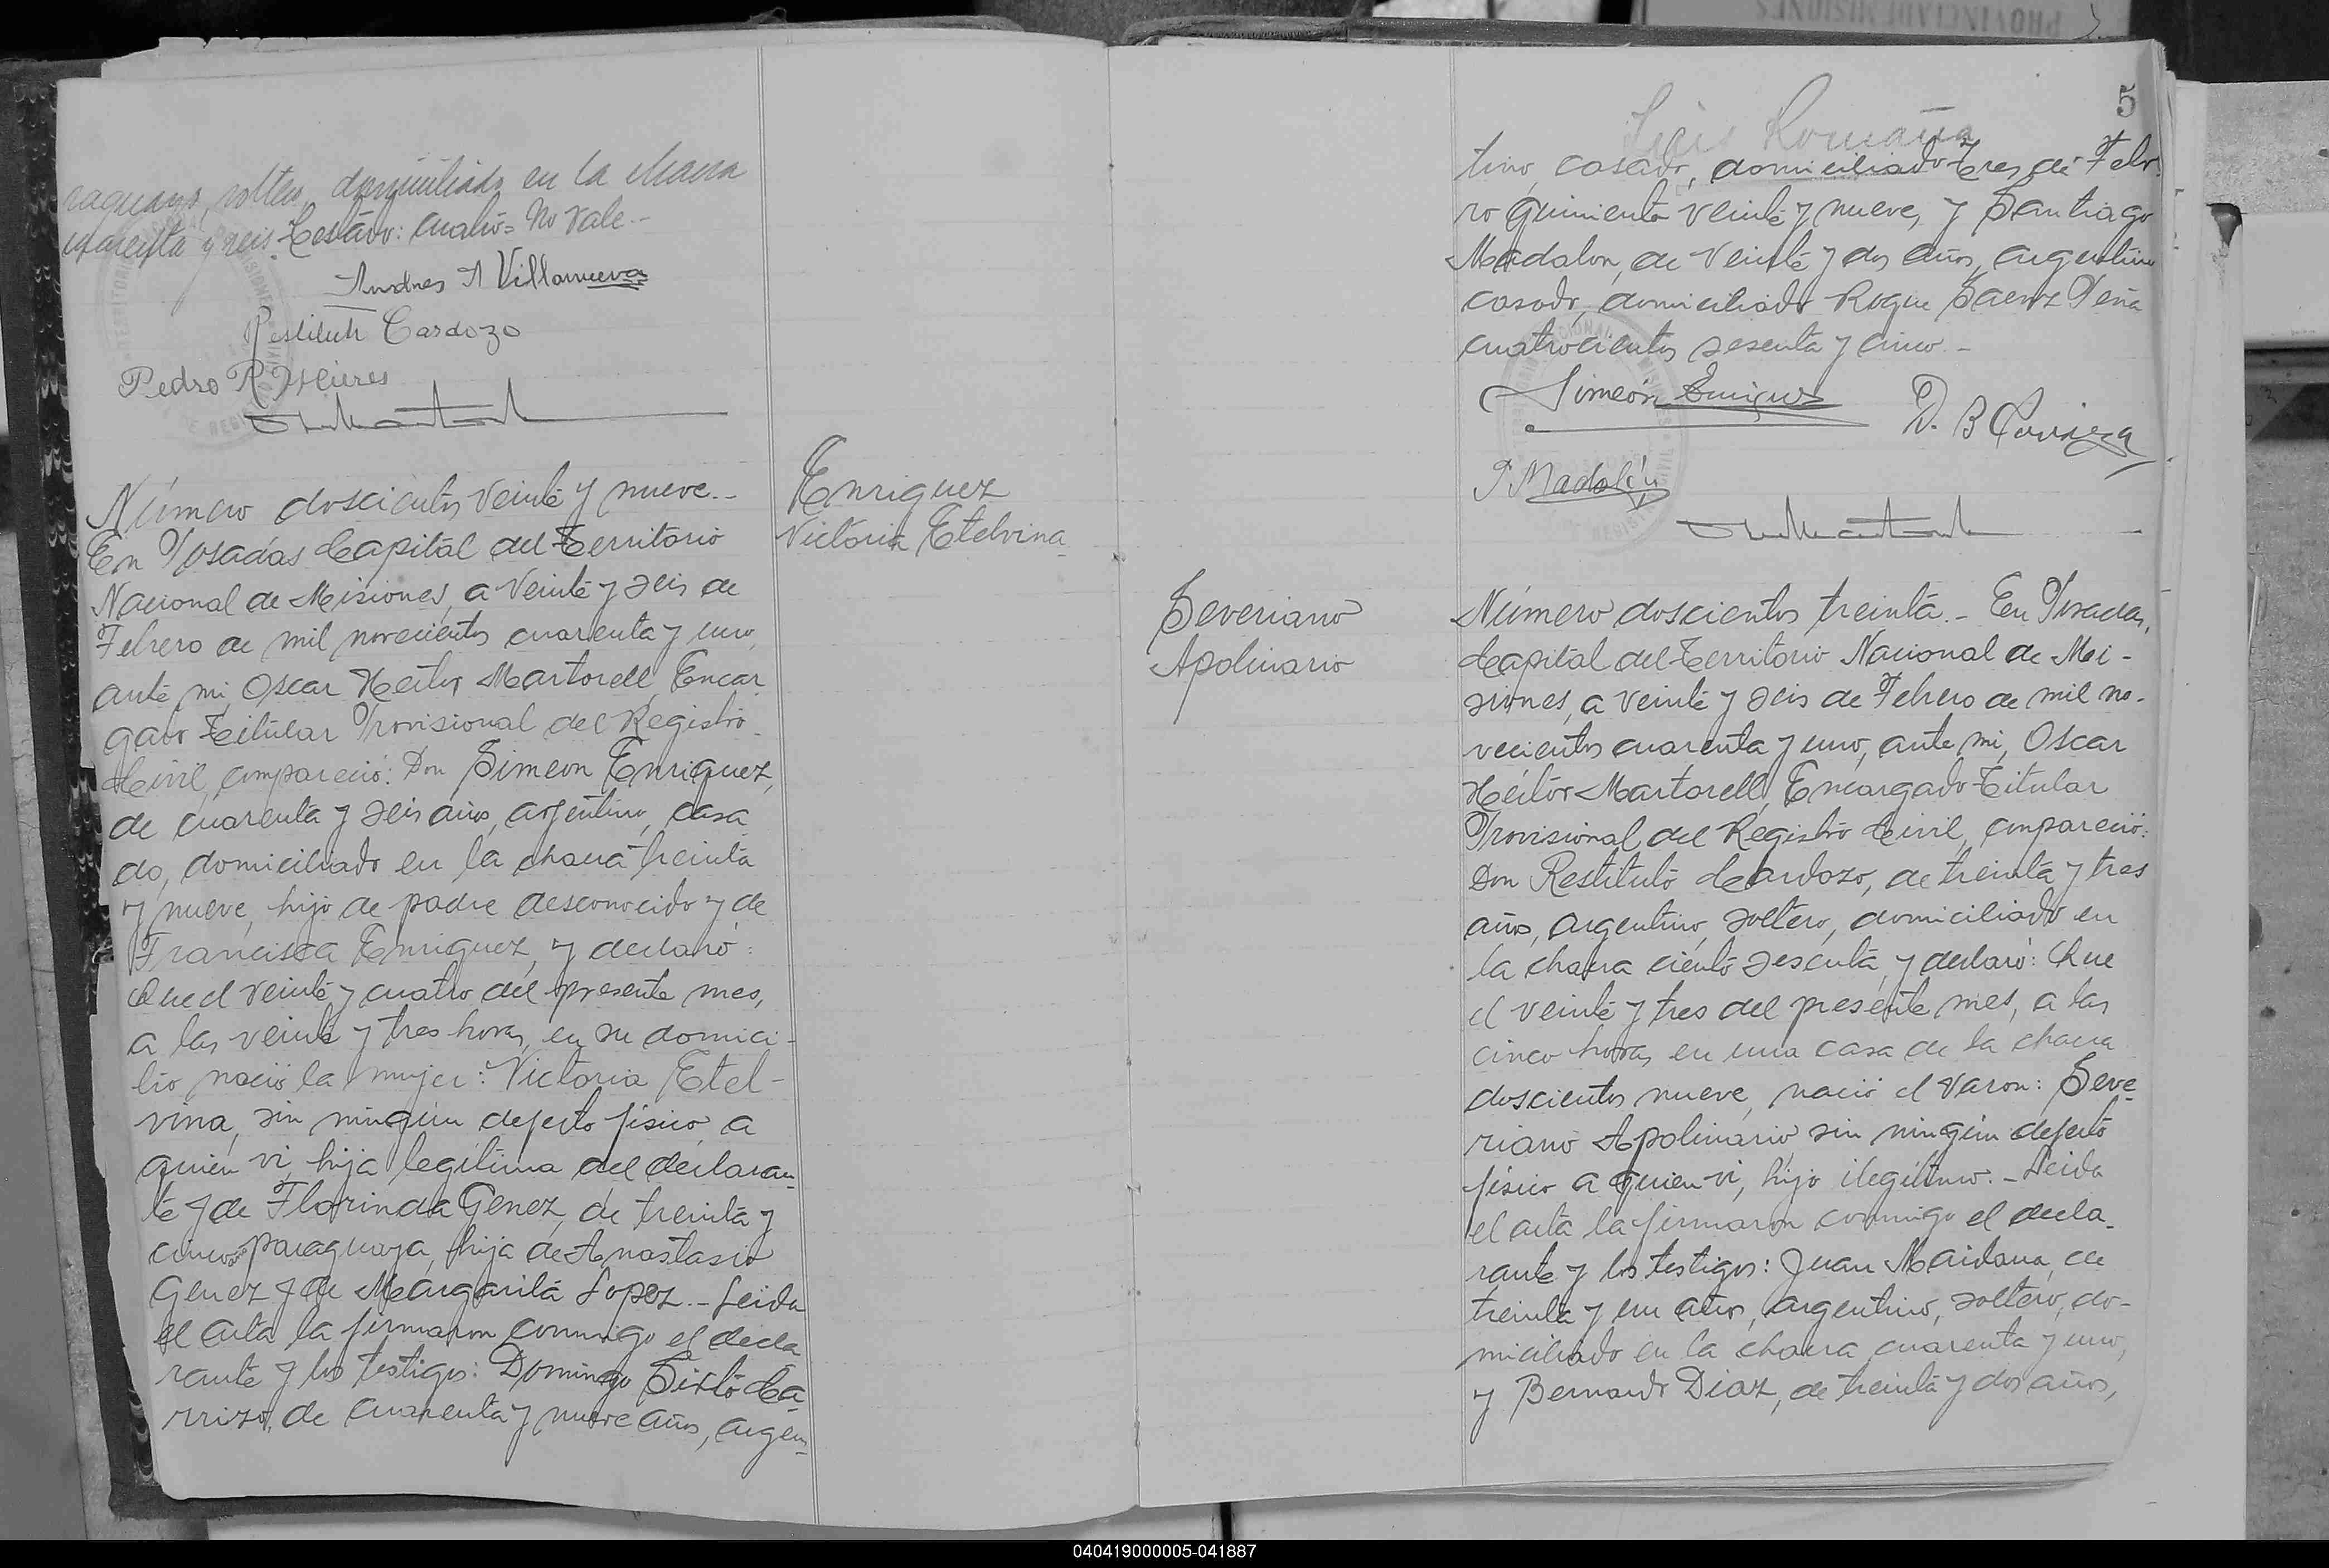 raguayo, soltero, domiciliado en la chacra
cuarenta y seis. Testado: cuatro = No vale.-
Andres A Villanueva
Restituto Cardozo
Pedro R.
Número doscientos veinte y nueve.-
En Posadas Capital del Territorio
Nacional de Misiones, a veinte y seis de
Febrero de mil novecientos cuarenta y uno,
ante mi, Oscar Hector Martorell, Encar
gado Titular Provisional del Registro
Civil, compareció: Don Simeon Enriquez,
de cuarenta y seis años, argentino, casa
do, domiciliado en la chacra treinta
y nueve, hijo de padre desconocido y de
Francisca Enriquez, y declaró:
Que el veinte y cuatro del presente mes,
a las veinte y tres horas, en su domici-
lio nació la mujer: Victoria Etel-
vina, sin ningún defecto físico, a
quien vi, hija legítima del declaran-
te y de Florinda Genez, de treinta y
cinco años paraguaya, hija de Anastasio
Genez y de Margarita Lopez.- Leida
el acta la firmaron conmigo el decla
rante y los testigos: Domingo Sixto Ca
rrizo, de cuarenta y nueve años, argen-
Enriquez
Victoria Etelvina
5
tino, casado, domiciliado Tres de Febre
ro quinientos veinte y nueve, y Santiago
Madalon, de veinte y dos años, argentino
casado, domiciliado Roque Saenz Peña
cuatrocientos sesenta y cinco.-
Simeón Enriquez
P Madolón
Severiano
Apolinario
Número doscientos treinta.- En Posadas,
Capital del Territorio Nacional de Mi-
siones, a veinte y seis de Febrero de mil no-
vecientos cuarenta y uno, ante mi, Oscar
Héctor Martorell, Encargado Titular
Provisional del Registro Civil, compareció:
Don Restituto Cardozo, de treinta y tres
años, argentino, soltero, domiciliado en
la chacra ciento sesenta, y declaró: Que
el veinte y tres del presente mes, a las
cinco horas, en una casa de la chacra
doscientos nueve, nació el varon: Seve
riano Apolinario, sin ningún defecto
físico a quien vi, hijo ilegítimo.- Leida
el acta la firmaron conmigo el decla-
rante y los testigos: Juan Maidana, de
treinta y un años, argentino, soltero, do-
miciliado en la chacra cuarenta y uno,
y Bernardo Diaz, de treinta y dos años,
040419000005-041887